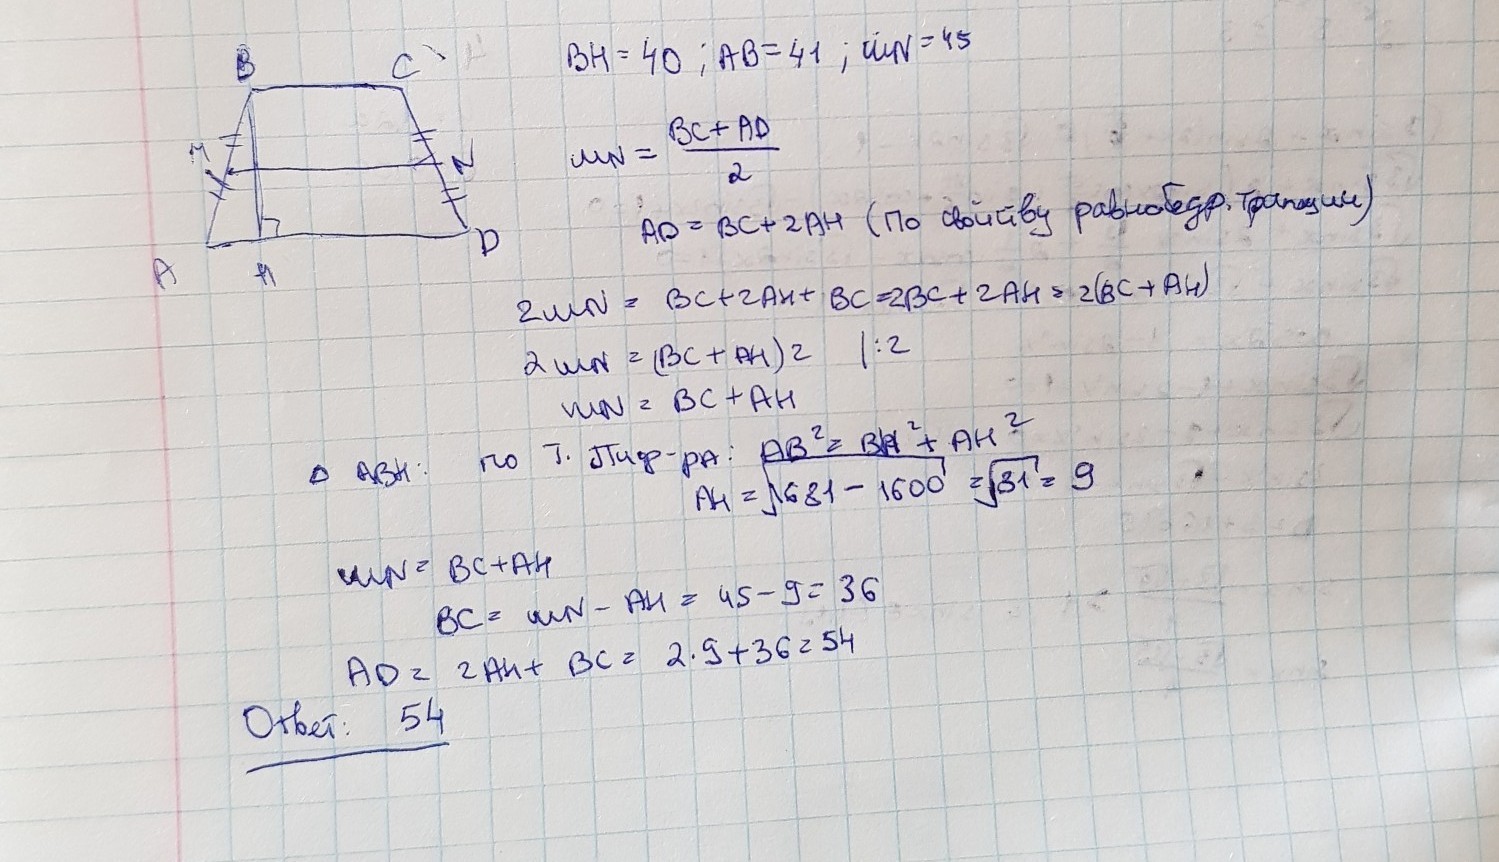 B C
M N
A H D
BH = 40 ; AB = 41 ; MN = 45
MN = BC + AD / 2
AD = BC + 2AH (по свойству равнобедр. трапеции)
2MN = BC + 2AH + BC = 2BC + 2AH = 2(BC + AH)
2MN = (BC + AH) 2 | : 2
MN = BC + AH
Δ ABH: по т. Пиф-ра: AB² = BH² + AH²
AH = √1681 - 1600 = √81 = 9
MN = BC + AH
BC = MN - AH = 45 - 9 = 36
AD = 2AH + BC = 2·9 + 36 = 54
Ответ: 54